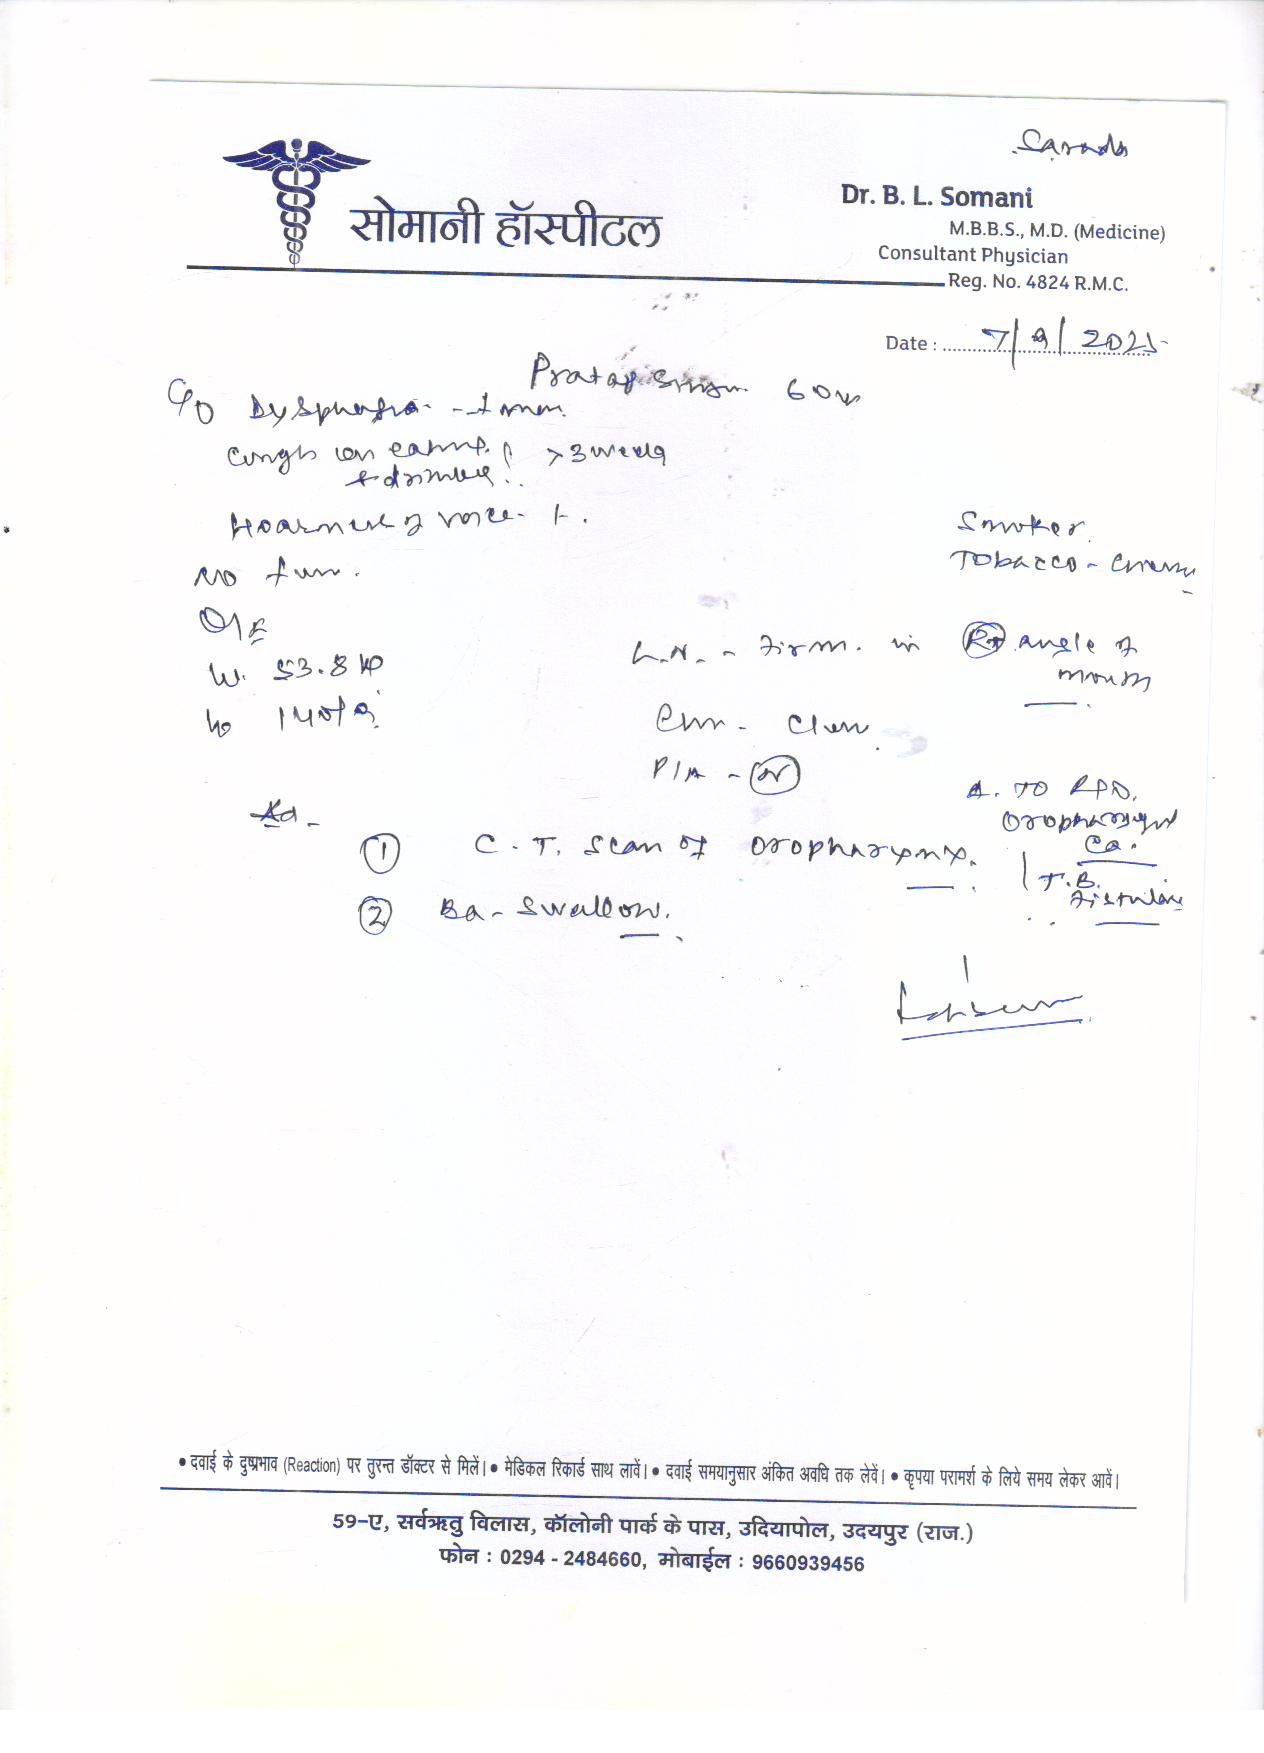 Sarada
सोमानी हॉस्पीटल
Dr. B. L. Somani
M.B.B.S., M.D. (Medicine)
Consultant Physician
Reg. No. 4824 R.M.C.
Date : 7/9/2021
Pratap Singh 60
C/O Dysphagia -
Cough on eating > 3 week
+ drinking
Hoarness of voice +.
Smoker
No
Tobacco -
O/E
W. 53.8 kg
L.N. - Firm. in Rt angle of
mouth
140/9
- Clear
P/A - N
A. TO
Oropharyngeal
Ad -
① C.T. Scan of oropharynx.
Ca.
T.B.
② Ba-Swallow.
• दवाई के दुष्प्रभाव (Reaction) पर तुरन्त डॉक्टर से मिलें। • मेडिकल रिकार्ड साथ लावें। • दवाई समयानुसार अंकित अवधि तक लेवें। • कृपया परामर्श के लिये समय लेकर आवें।
59-ए, सर्वऋतु विलास, कॉलोनी पार्क के पास, उदियापोल, उदयपुर (राज.)
फोन : 0294 - 2484660, मोबाईल : 9660939456